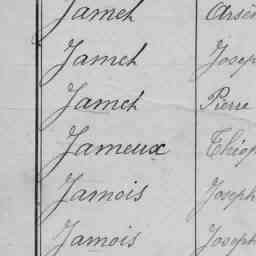 Jamet Arsèn
Jamet Josep
Jamet Pierre
Jameux Théop
Jamois Joseph
Jamois Joseph